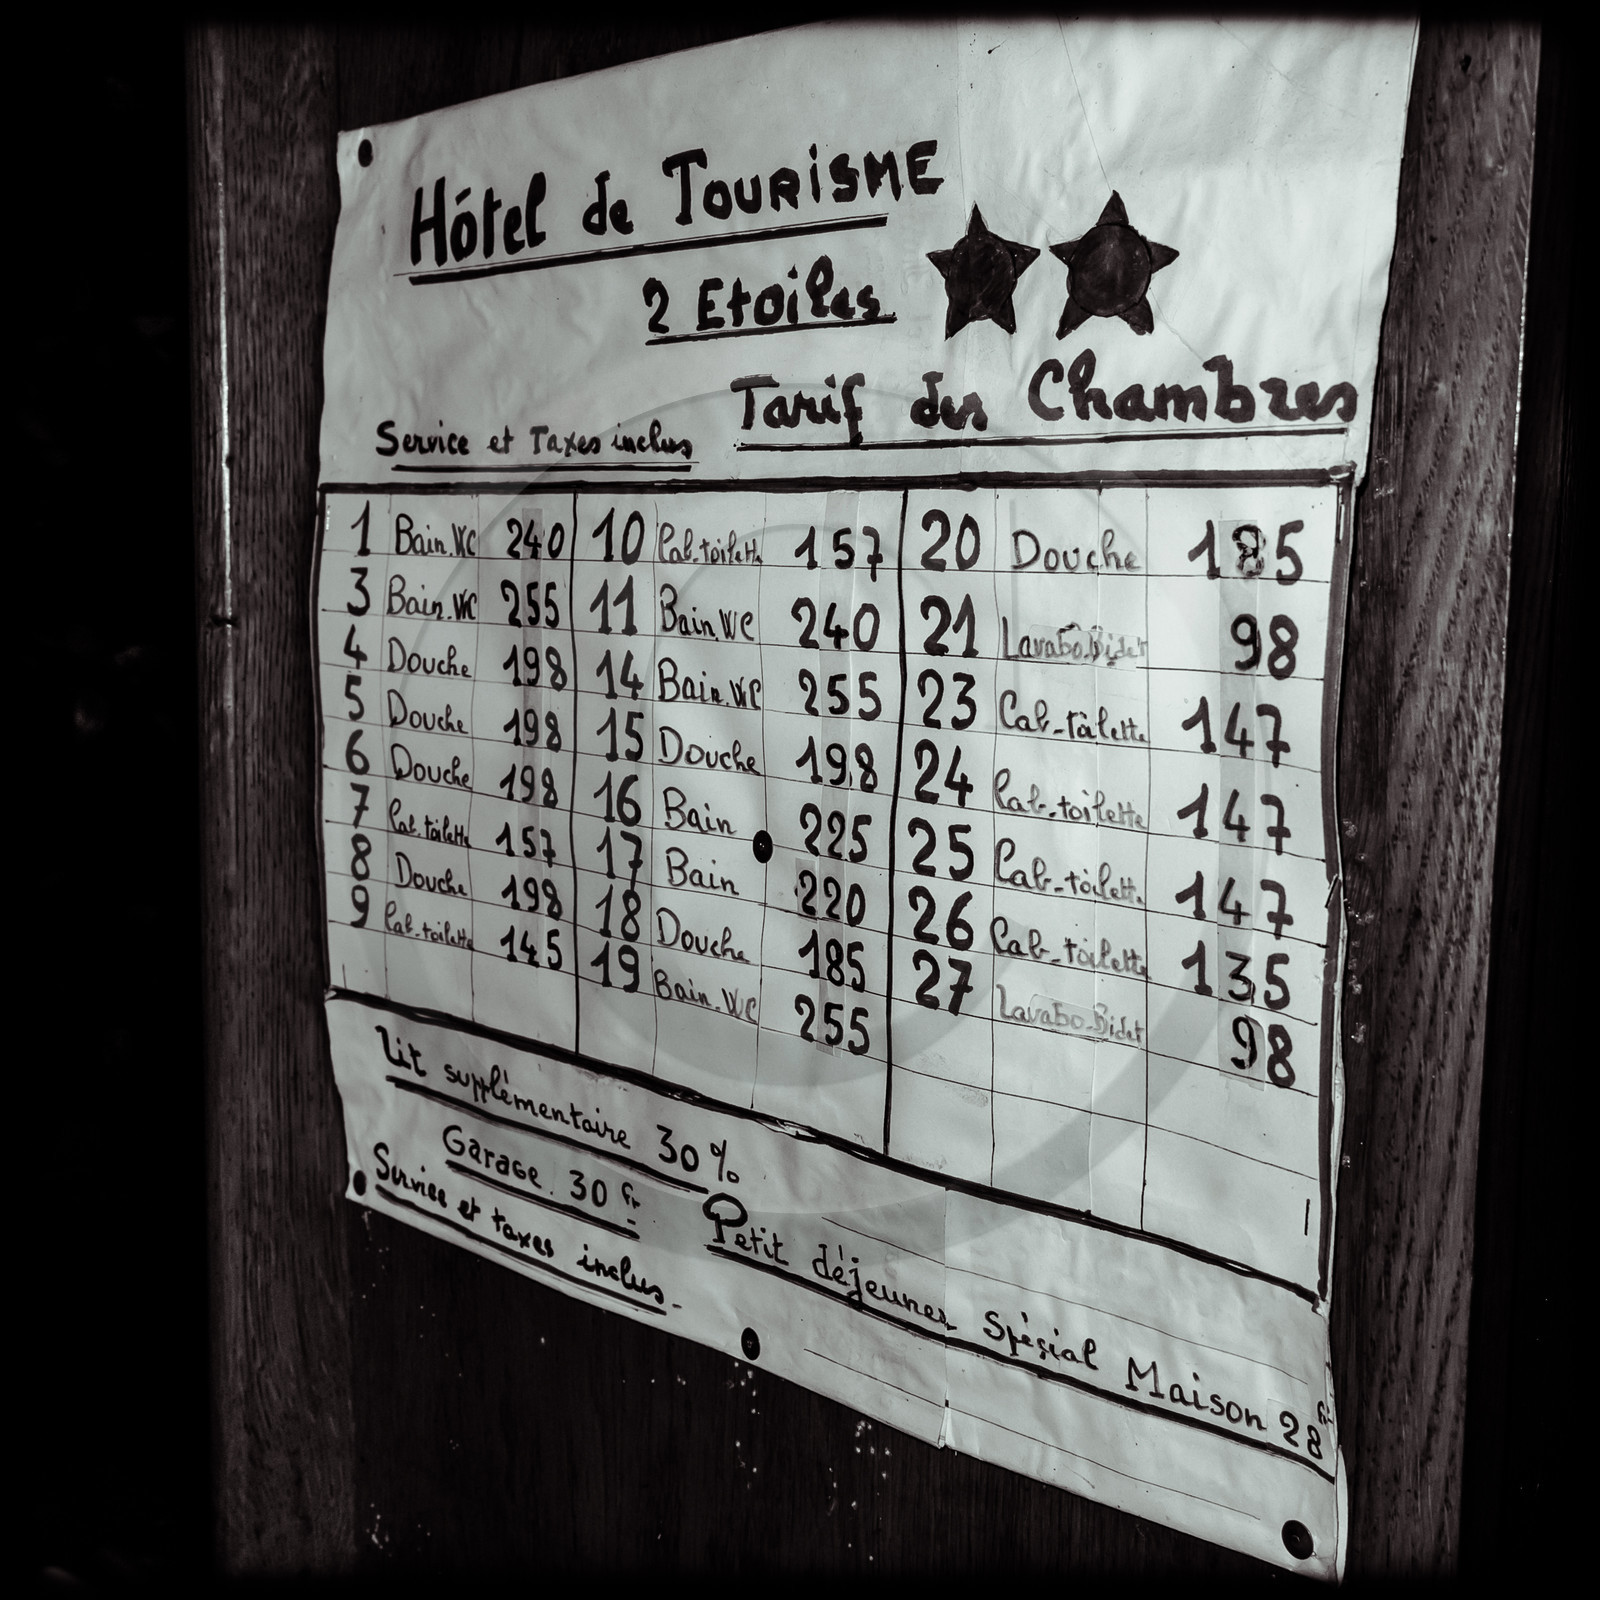 Hôtel de TOURISME
2 Etoiles
Tarif des Chambres
Service et Taxes inclus
1 Bain.WC 240 10 Cab.toilette 157 20 Douche 185
3 Bain.WC 255 11 Bain WC 240 21 Lavabo.Bidet 98
4 Douche 198 14 Bain.WC 255 23 Cab-toilette 147
5 Douche 198 15 Douche 198 24 Cab-toilette 147
6 Douche 198 16 Bain 225 25 Cab-toilette 147
7 Cab.toilette 157 17 Bain 220 26 Cab-toilette 135
8 Douche 198 18 Douche 185 27 Lavabo-Bidet 98
9 Cab-toilette 145 19 Bain.WC 255
Lit supplémentaire 30%
Garage. 30 Fr
Service et taxes inclus.
Petit déjeuner Spésial Maison 28 Fr